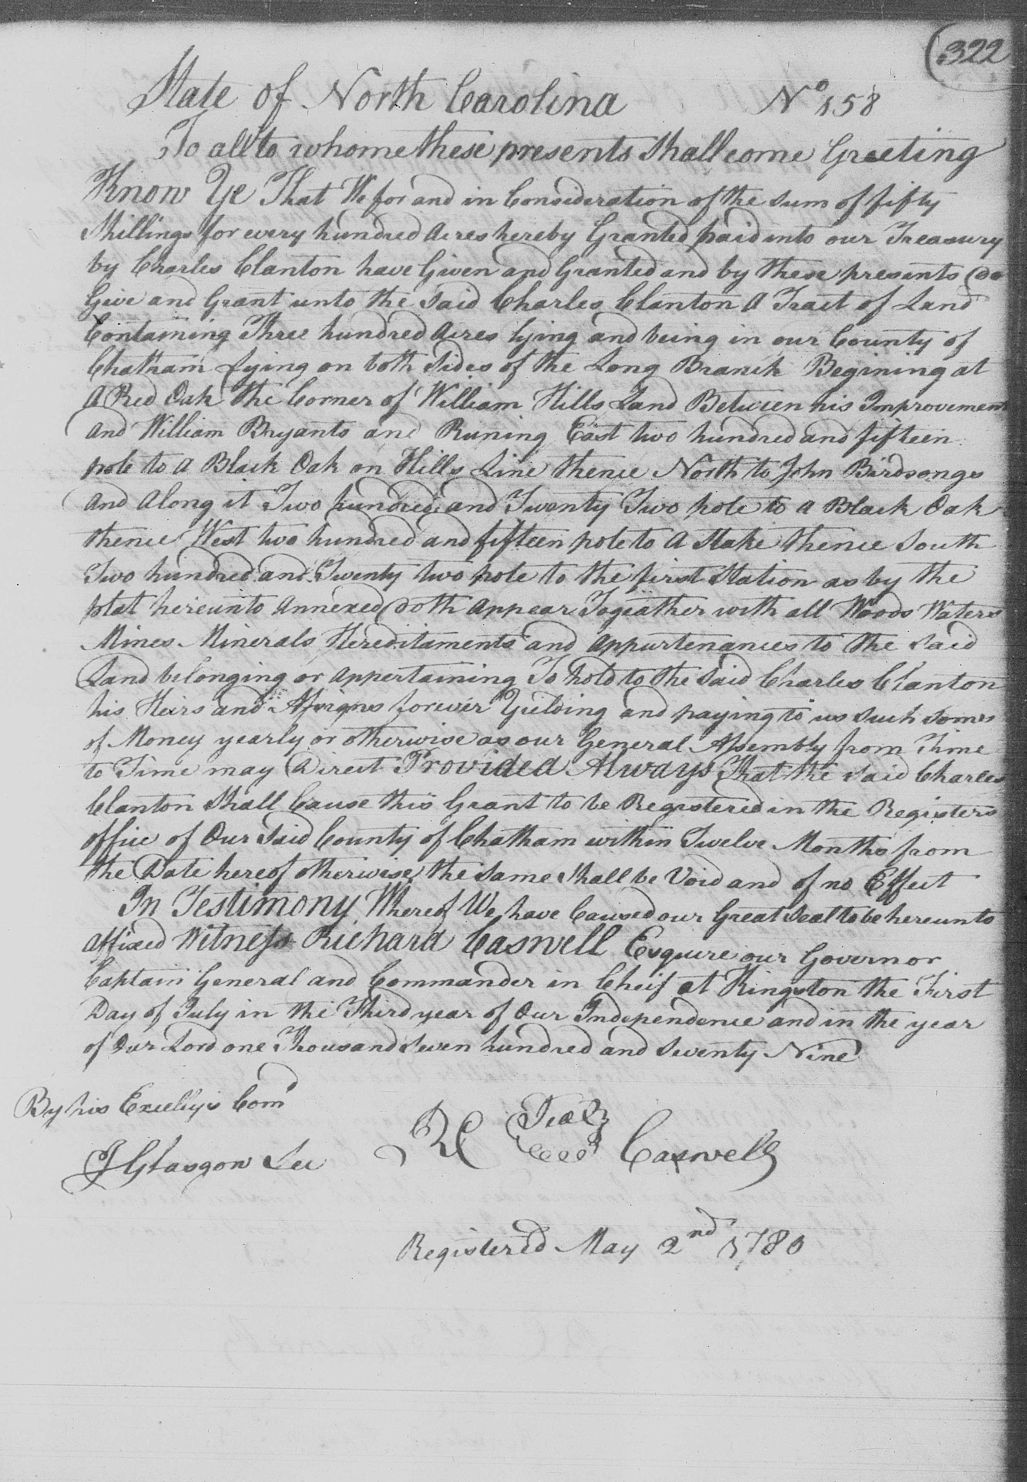 322
State of North Carolina No 158
To all to whome these presents Shall come Greeting
Know Ye That We for and in Consideration of the Sum of fifty
Shillings for every hundred Acres hereby Granted paid into our Treasury
by Charles Clanton have Given and Granted and by these presents do
Give and Grant unto the Said Charles Clanton A Tract of Land
Containing Three hundred Acres lying and being in our County of
Chatham Lying on both Sides of the Long Branch Begining at
A Red Oak the Corner of William Hills Land Between his Improvement
And William Bryants and Runing East two hundred and fifteen
pole to A Black Oak on Hills Line thence North to John Birdsongs
And Along it Two hundred and Twenty Two pole to a Black Oak
thence West two hundred and fifteen pole to A Stake thence South
Two hundred and Twenty two pole to the first Station as by the
plat hereunto Annexed doth Appear Togeather with all Woods Waters
Mines Minerals Hereditaments and Appurtenances to the Said
Land belonging or Appertaining To hold to the Said Charles Clanton
his Heirs and Assigns forever Yielding and paying to us Such Somes
of Money yearly or otherwise as our General Assembly from Time
to Time may Direct Provided Always That the Said Charles
Clanton Shall Cause this Grant to be Registered in the Registers
office of Our Said County of Chatham within Twelve Months from
the Date hereof otherwise the Same Shall be Void and of no Effect
In Testimony Whereof We have Caused our Great Seal to be hereunto
Affixed Witness Richard Caswell Esquire our Governor
Captain General and Commander in Cheif at Kingston the First
Day of July in the Third year of Our Independence and in the year
of Our Lord one Thousand Seven hundred and Seventy Nine
By his Excellys Comd
J Glasgow Sec Rd Seal Caswell
Registered May 2nd 1780